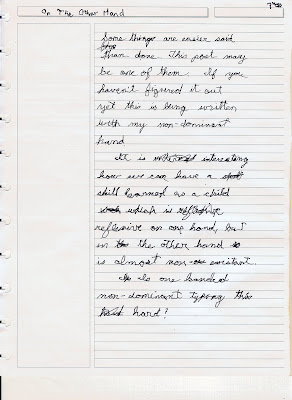 On The Other Hand
Some things are easier said
than done. This post may
be one of them. If you
haven't figured it out
yet this is being written
with my non-dominant
hand
It is interesting
how we can have a
skill learned as a child
which is
reflexive on one hand, but
in the other hand
is almost non-existant.
Is one handed
non-dominant typing this
hard?